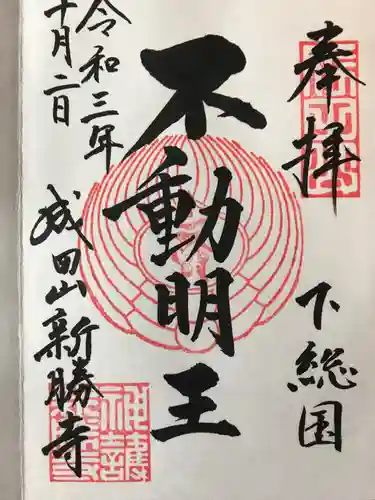 奉拝
下総国
不動明王
令和三年
十月二日
成田山新勝寺